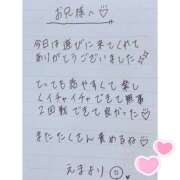 お兄様へ♡
今日は遊びに来てくれて
ありがとうございました
とっても癒やすくて楽し
くイチャイチャできて無事
2回戦できて良かった♡
またたくさん責めるね♡
えまより